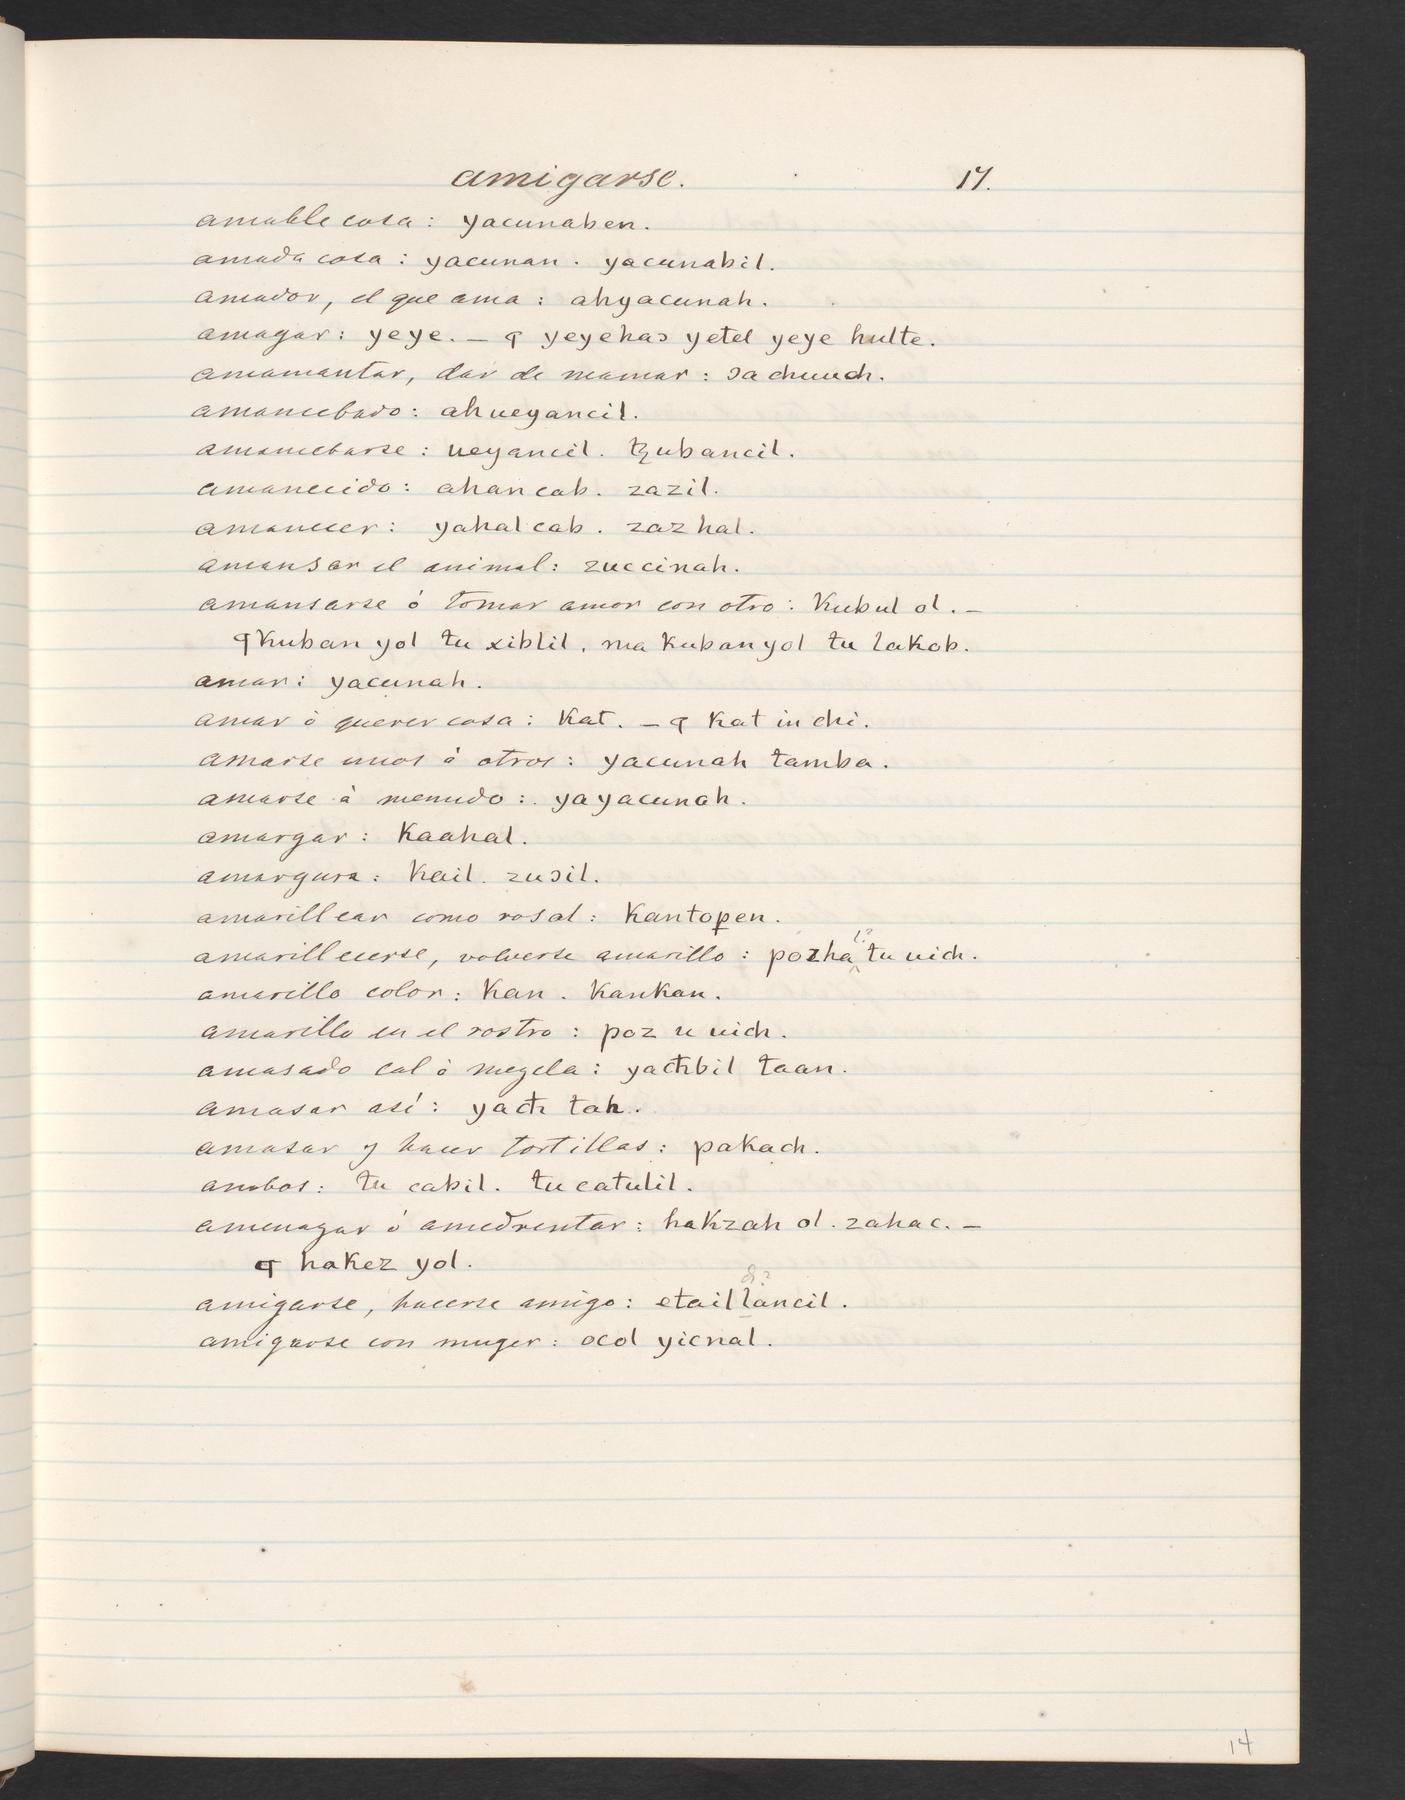 amigarse. 17.
amable cosa: yacunaben.
amada cosa: yacunan. yacunabil.
amador, el que ama: ahyacunah.
amagar: yeye. — ꟼ yeyehaɔ yetel yeye hulte.
amamantar, dar de mamar: ɔa chuuch.
amancebado: ahueyancil.
amancebarse: ueyancil. tzubancil.
amanecido: ahan cab. zazil.
amanecer: yahal cab. zaz hal.
amansar el animal: zuccinah.
amansarse ó tomar amor con otro: Kubul ol. —
ꟼ Kuban yol tu xiblil, ma kuban yol tu lakob.
amar: yacunah.
amar ó querer cosa: Kat. — ꟼ Kat in chi.
amarse unos á otros: yacunah tamba.
amarse á menudo: yayacunah.
amargar: Kaahal.
amargura: Kail. zuɔil.
amarillear como rosal: Kantopen.
amarillecerse, volverse amarillo: pozha^l? tu uich.
amarillo color: Kan. KanKan.
amarillo en el rostro: poz u uich.
amasado cal ó mezcla: yacħbil taan.
amasar así: yacħ tah.
amasar y hacer tortillas: paKach.
ambos: tu cabil. tu catulil.
amenazar ó amedrentar: haKzah ol. zahac. —
ꟼ haKez yol.
amigarse, hacerse amigo: etaillancil.
amigarse con muger: ocol yicnal.
14